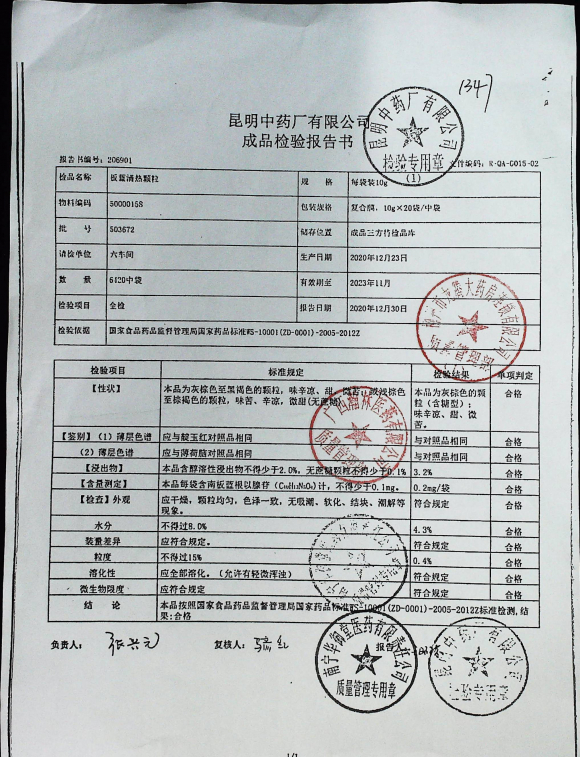 1347
昆明中药厂有限公司
成品检验报告书
昆明中药厂有限公司
检验专用章
(1)
报告书编号: 206901
文件编码: R-QA-G015-02
检品名称 板蓝清热颗粒 规 格 每袋装10g
物料编码 50000158 包装规格 复合膜, 10g×20袋/中袋
批 号 503672 储存位置 成品三方待检品库
请检单位 六车间 生产日期 2020年12月23日
数 量 6120中袋 有效期至 2023年11月
检验项目 全检 报告日期 2020年12月30日
检验依据 国家食品药品监督管理局国家药品标准WS-10001(ZD-0001)-2005-2012Z
检验项目 标准规定 检验结果 单项判定
【性状】 本品为灰棕色至黑褐色的颗粒,味辛凉、甜、微苦;或浅棕色至棕褐色的颗粒,味苦、辛凉,微甜(无蔗糖) 本品为灰棕色的颗粒(含糖型);味辛凉、甜、微苦。 合格
【鉴别】(1)薄层色谱 应与靛玉红对照品相同 与对照品相同 合格
(2)薄层色谱 应与薄荷脑对照品相同 与对照品相同 合格
【浸出物】 本品含醇溶性浸出物不得少于2.0%,无蔗糖颗粒不得少于0.1% 3.2% 合格
【含量测定】 本品每袋含南板蓝根以腺苷(C₁₀H₁₃N₅O₄)计,不得少于0.1mg。 0.2mg/袋 合格
【检查】外观 应干燥,颗粒均匀,色泽一致,无吸潮、软化、结块、潮解等现象。 符合规定 合格
水分 不得过8.0% 4.3% 合格
装量差异 应符合规定。 符合规定 合格
粒度 不得过15% 0.4% 合格
溶化性 应全部溶化。(允许有轻微浑浊) 符合规定 合格
微生物限度 应符合规定 符合规定 合格
结 论 本品按照国家食品药品监督管理局国家药品标准WS-10001(ZD-0001)-2005-2012Z标准检测,结果:合格
负责人: 张兴元 复核人: 报告
南宁华御堂医药有限责任公司
质量管理专用章
1/1